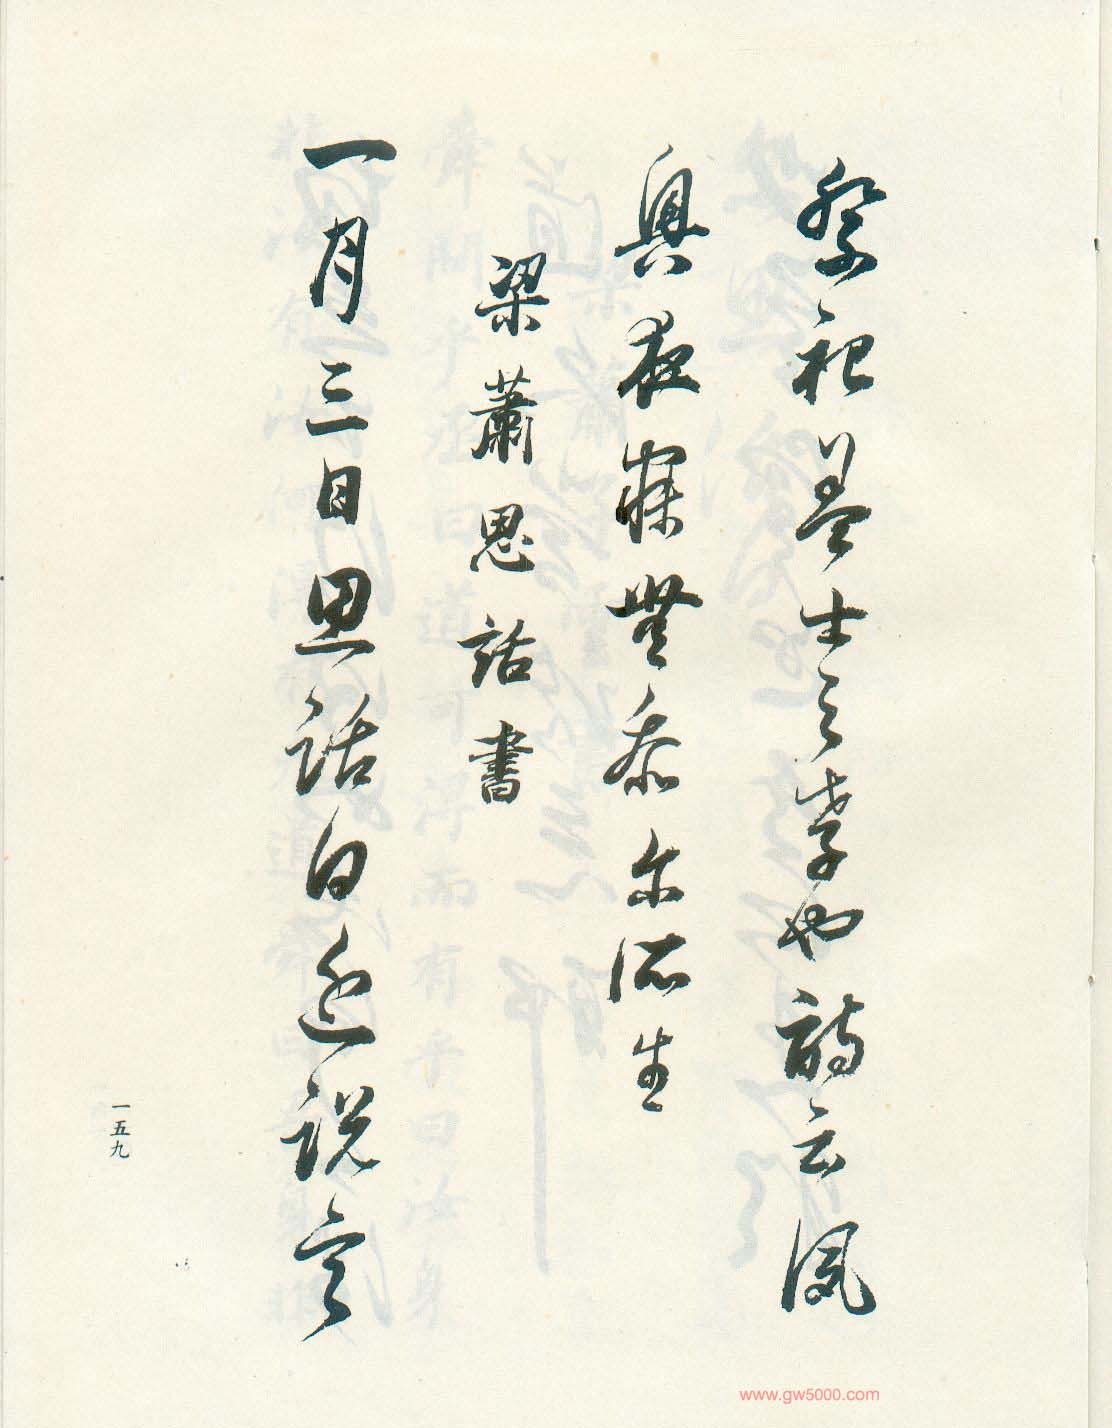 祭祀蓋士之孝也詩云夙
興夜寐無忝尔所生
梁蕭思話書
一月三日思話白近説言
一五九
www.gw5000.com